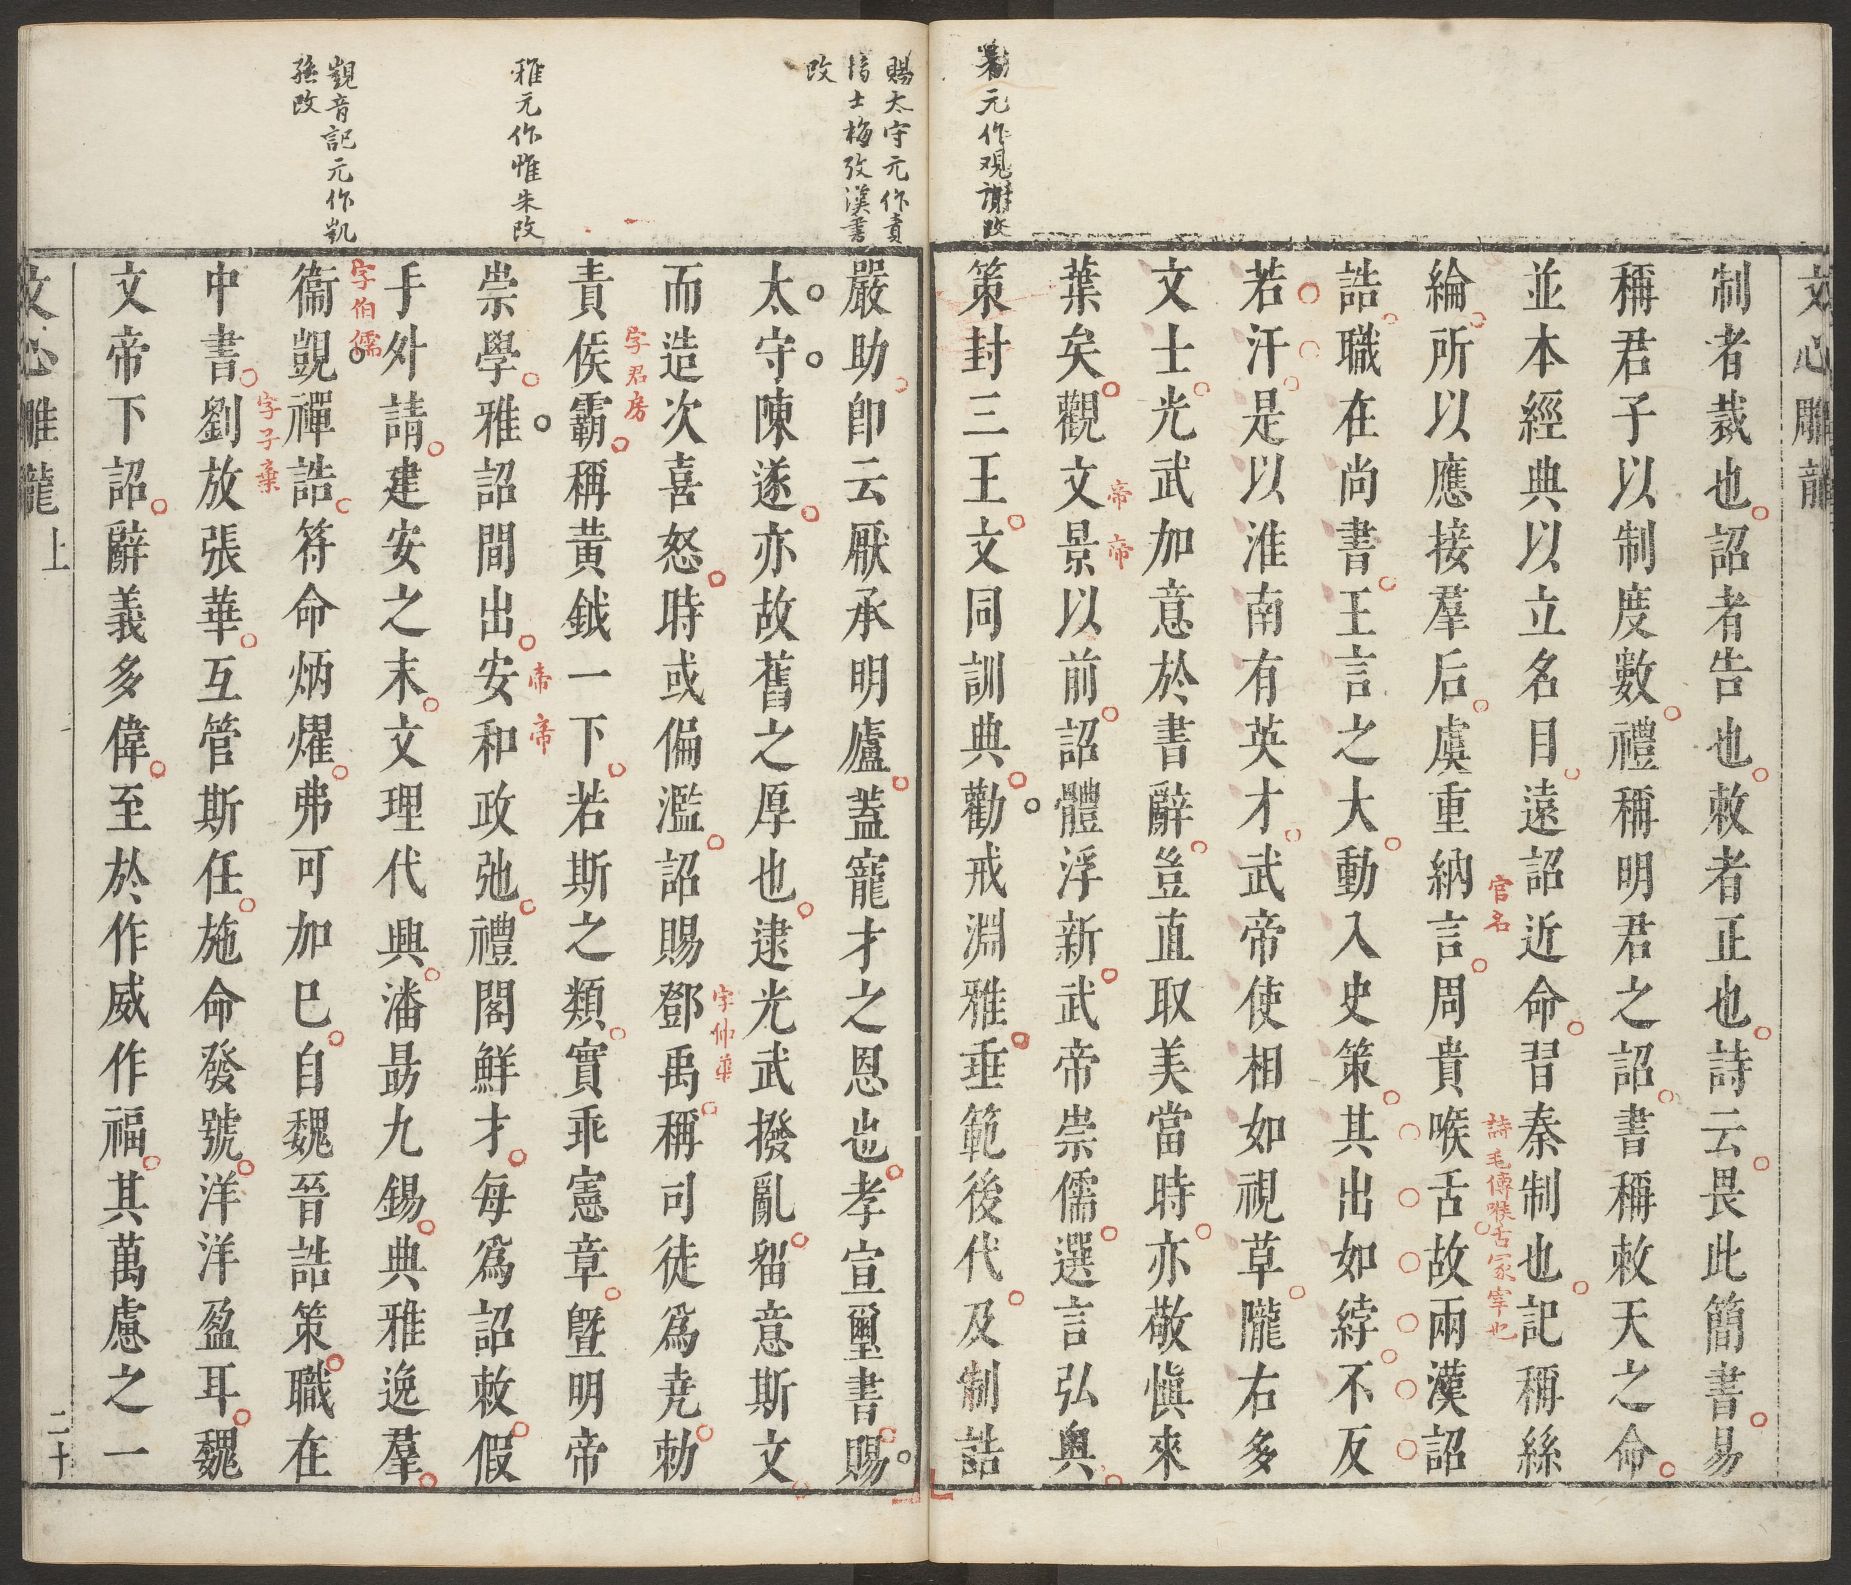 文心雕龍
制者裁也詔者告也敕者正也詩云畏此簡書易
稱君子以制度數禮稱明君之詔書稱敕天之命
並本經典以立名目遠詔近命習秦制也記稱絲
綸所以應接羣后虞重納言周貴喉舌故兩漢詔
官名
詩毛傳喉舌冢宰也
誥職在尚書王言之大動入史策其出如綍不反
若汗是以淮南有英才武帝使相如視草隴右多
文士光武加意於書辭豈直取美當時亦敬慎來
葉矣觀文景以前詔體浮新武帝崇儒選言弘奥
帝帝
策封三王文同訓典勸戒淵雅垂範後代及制誥
元作观謝改
嚴助卽云厭承明廬蓋寵才之恩也孝宣璽書賜
太守陳遂亦故舊之厚也逮光武撥亂留意斯文
賜太守元作責
士梅攷漢書
改
而造次喜怒時或偏濫詔賜鄧禹稱司徒爲堯勑
字仲華
責侯霸稱黄鉞一下若斯之類實乖憲章曁明帝
字君房
崇學雅詔間出安和政弛禮閣鮮才每爲詔敕假
帝帝
雅元作惟朱改
手外請建安之末文理代興潘勗九錫典雅逸羣
衞覬禪誥符命炳燿弗可加巳自魏晉誥策職在
字伯儒
覬音記元作凱
孫改
中書劉放張華互管斯任施命發號洋洋盈耳魏
字子棄
文帝下詔辭義多偉至於作威作福其萬慮之一
文心雕龍
上
二十